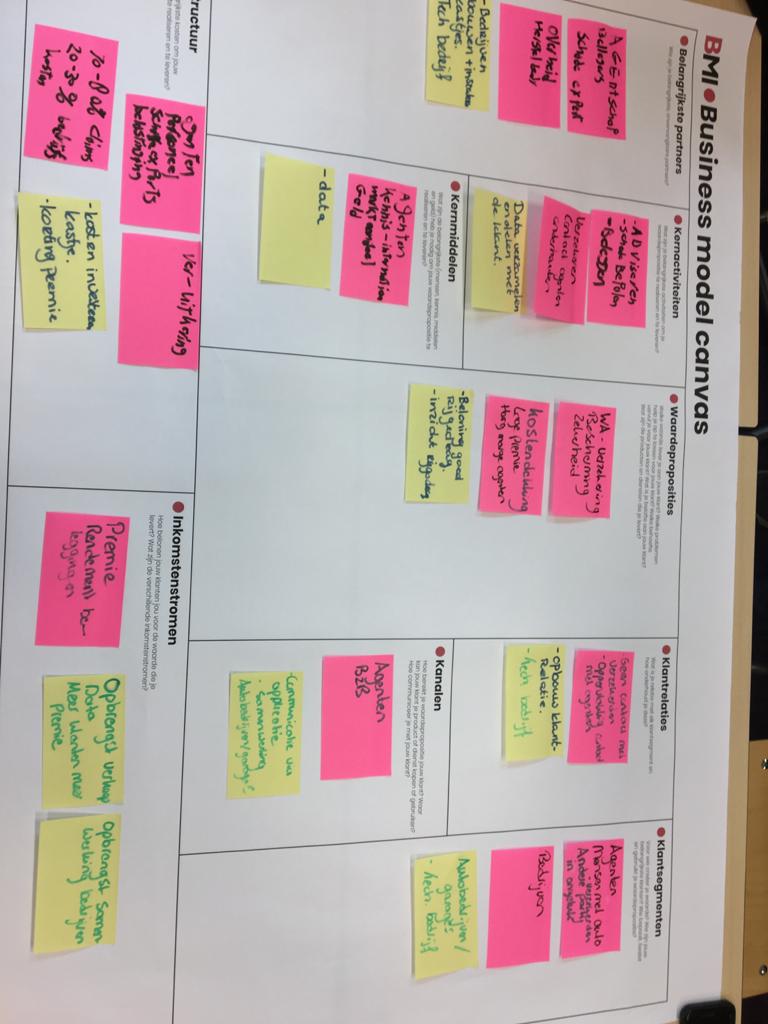 BMI Business model canvas
Belangrijkste partners
Wie zijn je belangrijkste, onvervangbare partners?
AGEntschap
Schade expert
Overheid
Herstelbedr
- Bedrijven
bouwen + installen
kastjes.
Tech bedrijf
Kernactiviteiten
Wat zijn je belangrijkste activiteiten om je
waardepropositie te realiseren en te leveren?
- ADviseren
- schade Bepalen
Verzekeren
Contact agenten
onderhouden
Data verzamelen
en delen met
de klant.
Kernmiddelen
Wat zijn de belangrijkste (mensen, kennis, middelen
en geld) heb je nodig om jouw waardepropositie te
realiseren en te leveren?
Agenten
Kennis - internation
marktaandeel
Geld
- data
Waardeproposities
Welke waarde lever je aan jouw klant? Welke problemen
help je op te lossen voor jouw klant? Welke behoeften
vervul je voor jouw klant? Wat is je belofte aan jouw klant?
Wat zijn de producten en diensten die je levert?
WA - verzekering
Bescherming
Zekerheid
Kostendekking
Lage premie
Hoog marge agenten
- Beloning goed
Rijgedrag.
- inzicht rijgedrag
Klantrelaties
Wat is je relatie met elk klantsegment en
hoe onderhoud je deze?
Geen contact met
verzekerden
- Oppervlakkig contact
met agenten
- opbouw klant-
Relatie.
- Tech bedrijf
Kanalen
Hoe bereikt je waardepropositie jouw klant? Waar
kan jouw klant je product of dienst kopen of gebruiken?
Hoe communiceer je met jouw klant?
Agenten
B2B
- Communicatie via
applicatie
- Samenwerking
Autobedrijven/garages
Klantsegmenten
Voor wie creëer je waarde? Wie zijn jouw
belangrijkste klanten? Wie bepaalt, beslist
en gebruikt je waardepropositie?
Agenten
Mensen met auto
- verzekerden
Andere partij
in ongeluk
Bedrijven
Autobedrijven/
garages
- Tech. bedrijf
ructuur
grijkste kosten om jouw
te realiseren en te leveren?
agenten
Personeel
Schade experts
belastinging
70-80% claims
20-30% bedrijfs
kosten
- kosten investeren
kastje.
- korting premie
Inkomstenstromen
Hoe belonen jouw klanten jou voor de waarde die je
levert? Wat zijn de verschillende inkomstenstromen?
Premie
Rendement be-
leggingen
Opbrengst verkoop
Data
Meer klanten meer
Premie
Opbrengst samen
werking bedrijven